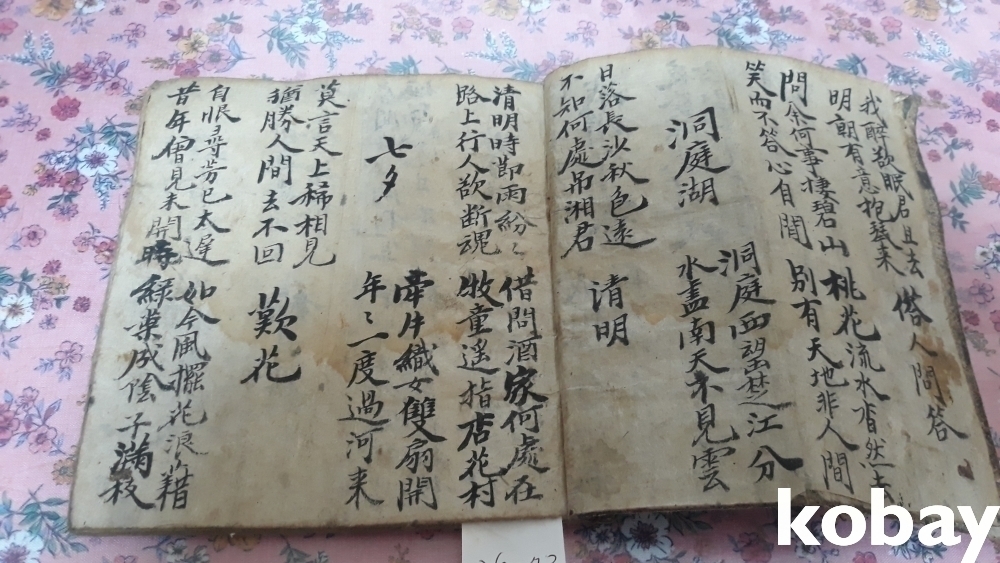 我醉欲眠君且去
明朝有意抱琴來
答人問答
問余何事棲碧山
笑而不答心自閒
桃花流水杳然去
別有天地非人間
洞庭湖
洞庭西望楚江分
水盡南天不見雲
日落長沙秋色遠
不知何處吊湘君
請明
清明時節雨紛〻
路上行人欲断魂
借問酒家何處在
牧童遥指店花村
七夕
牽牛織女雙扇開
年〻一度過河来
莫言天上稀相見
猶勝人間去不回
歎花
自恨尋芳已太遅
昔年曾見未開時
如今風擺花浪藉
綠葉成陰子滿枝
kobay